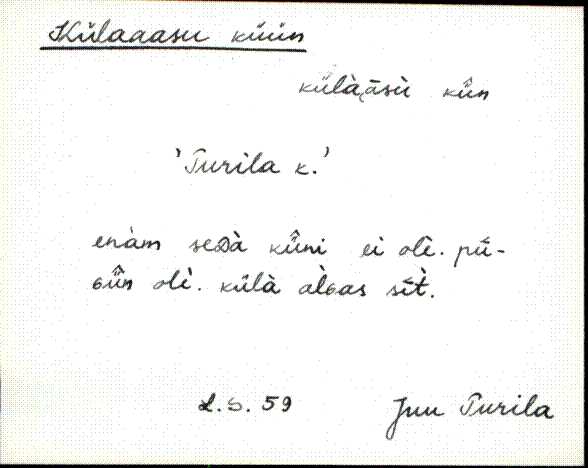 Külaaasu küün
külà͔āsù kǖn
'Turila k.'
enàm seᴅà kǖni ei olè. pǖ-
ɢǖn olì. külà alɢas sīt̀.
L.S. 59
Juu Turila